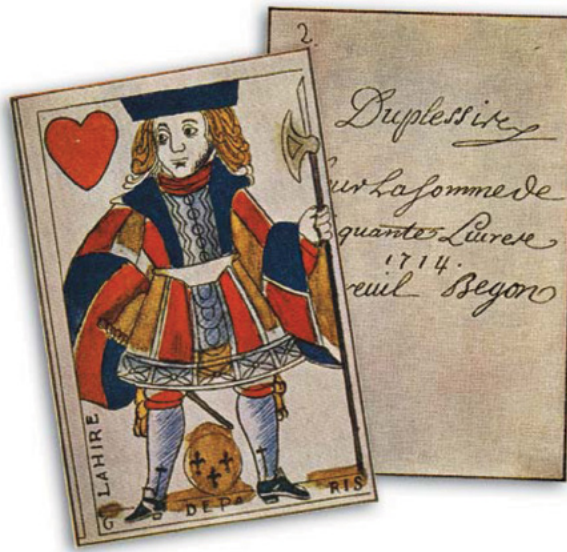 G LAHIRE
DE PARIS
2.
Duplessis
la somme de
quantes Livres
1714.
reuil Begon